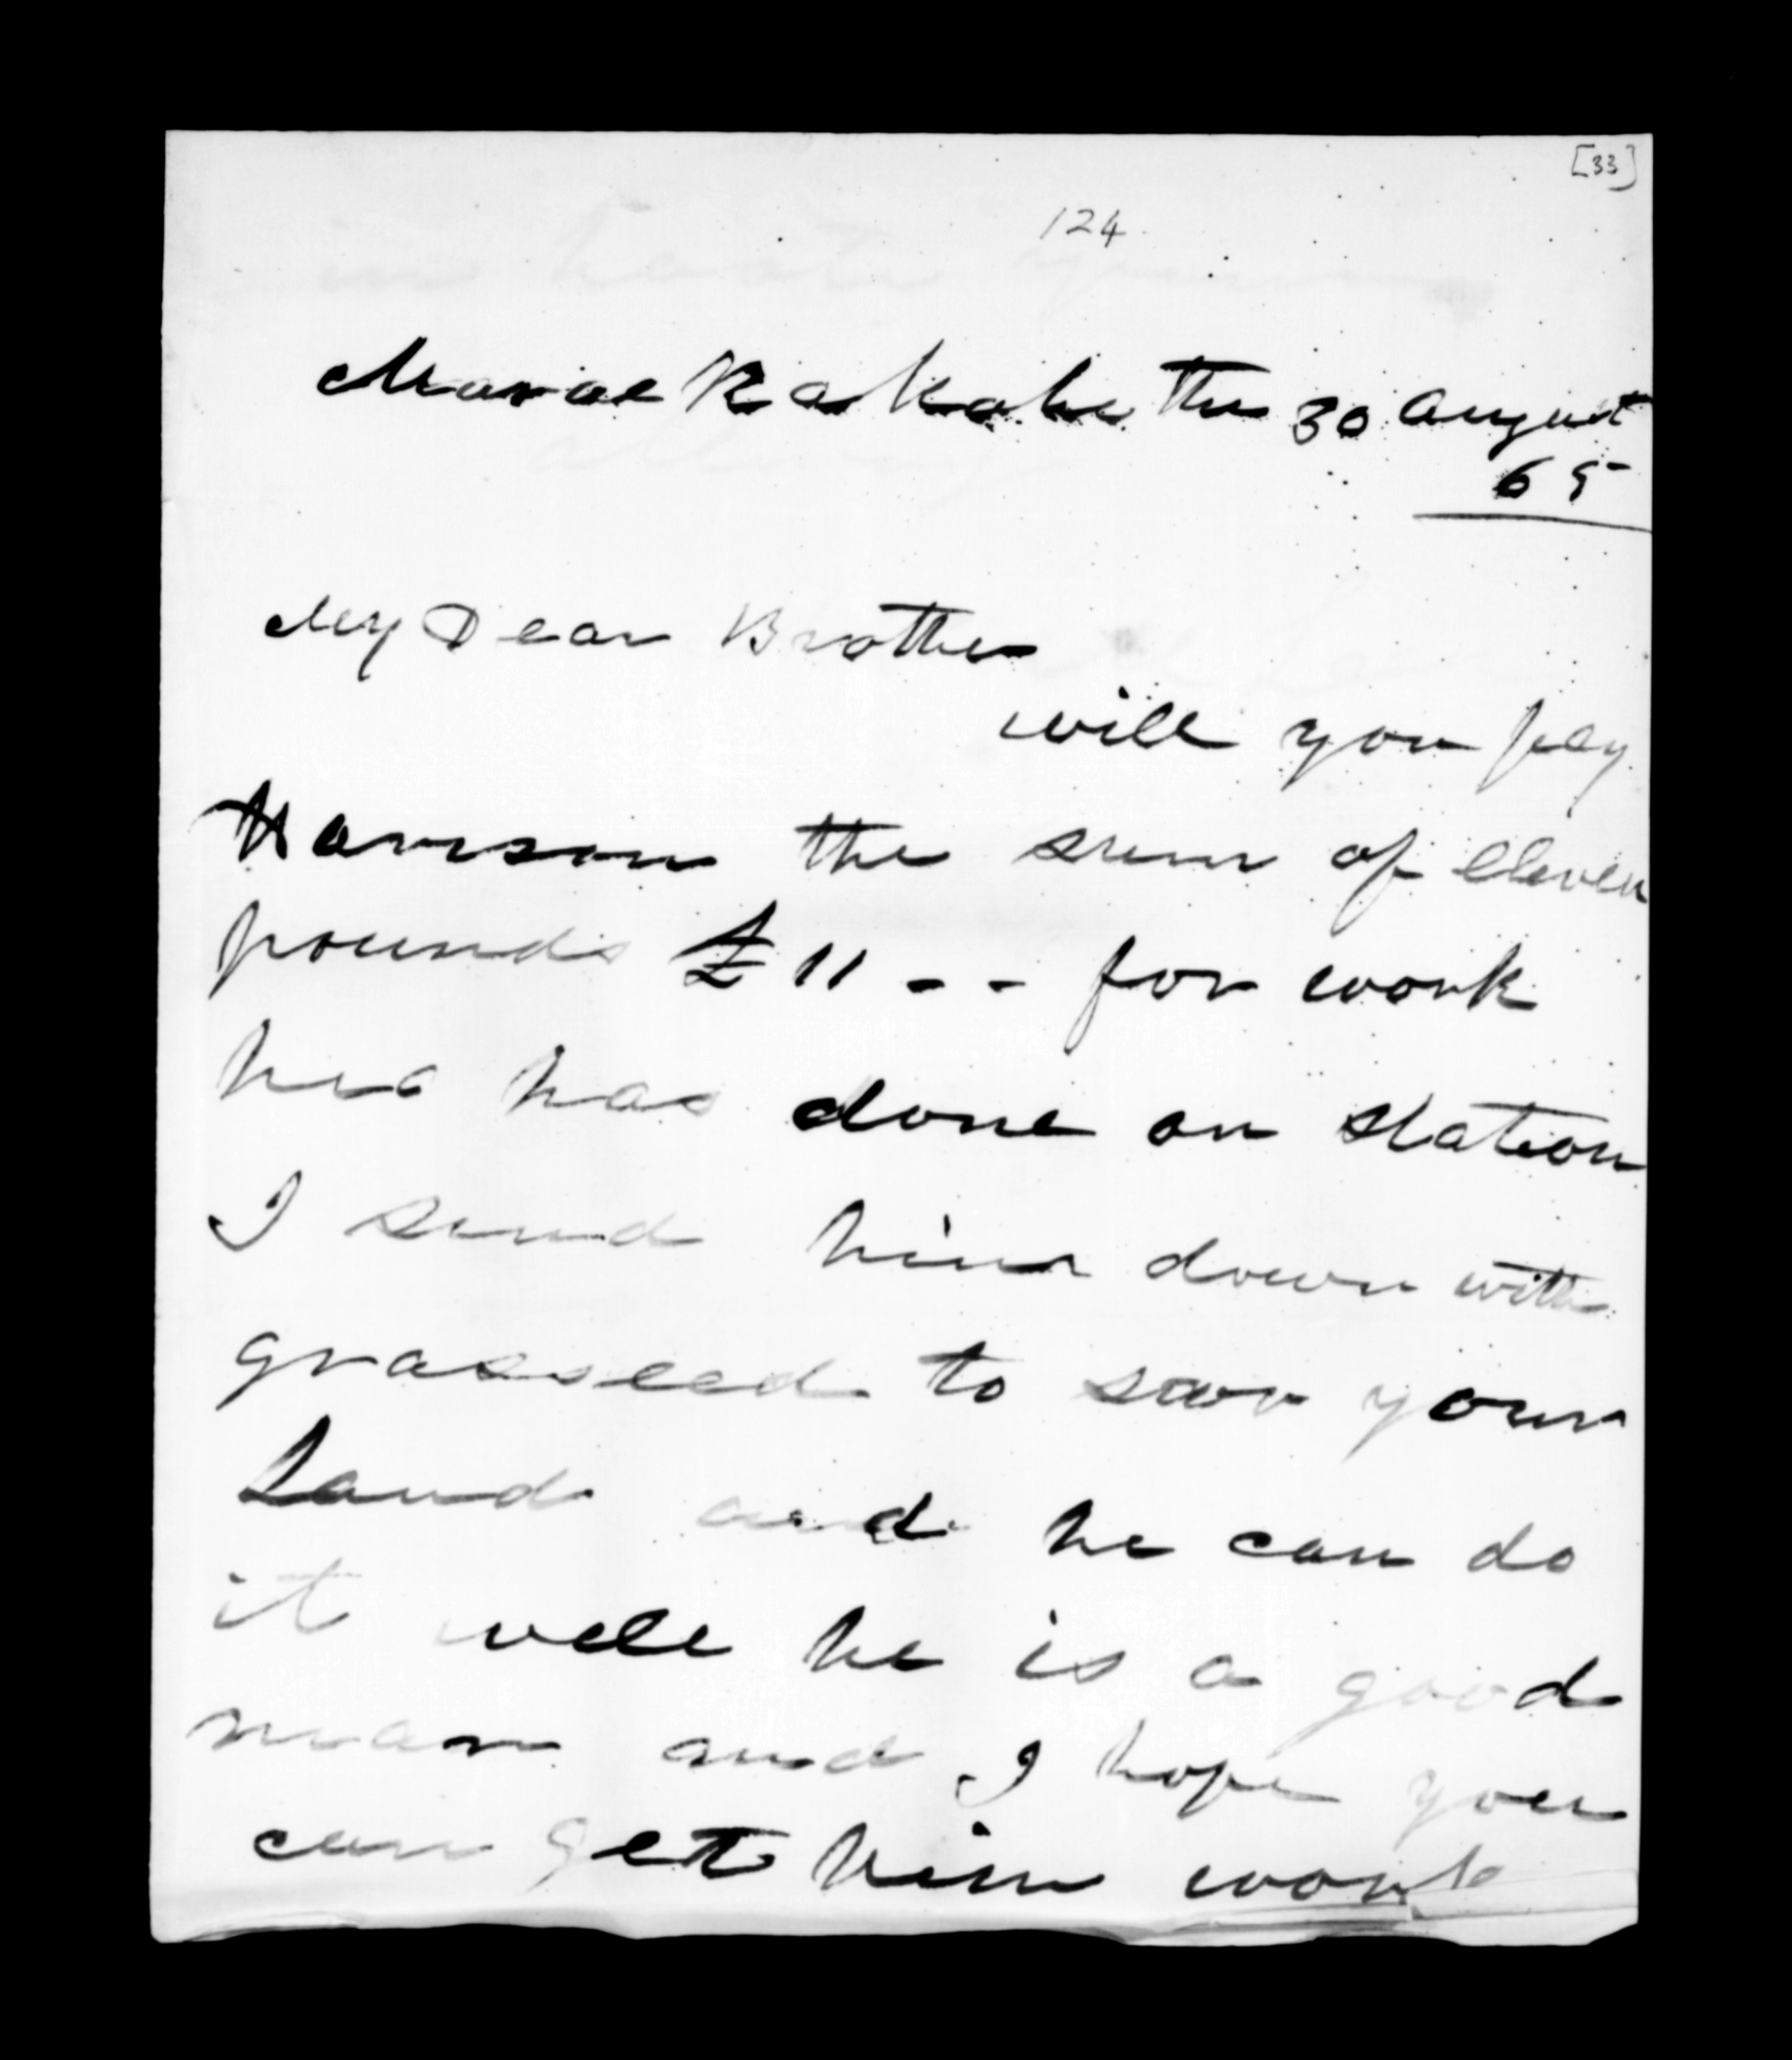 [33]
124
Marae Kakaho the 30 August
65
My Dear Brother
will you pay
Harrison the sum of eleven
pounds £11 - - for work
he has done on station
I send him down with
grasseed to sow your
Land and he can do
it well he is a good
man and I hope you
can get him work